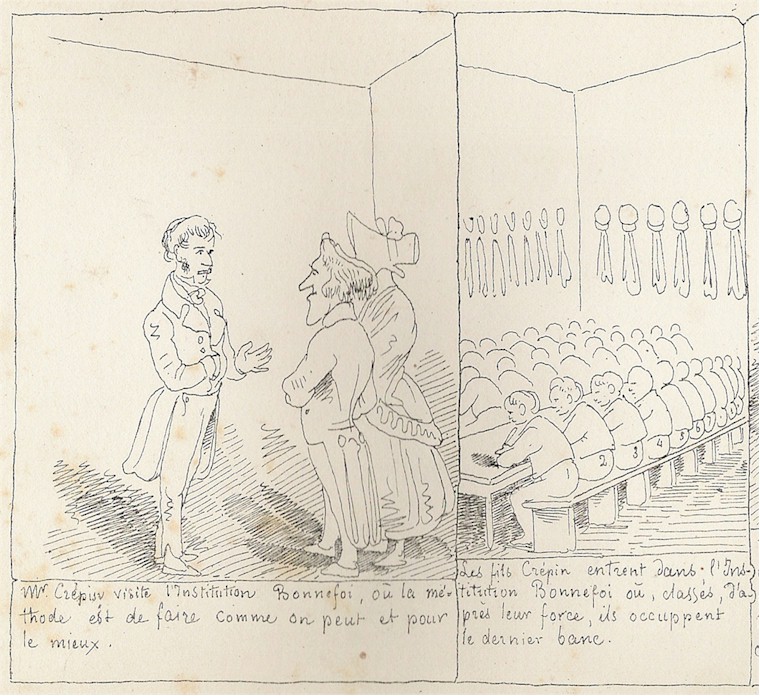 Mr. Crépin visite l'Institution Bonnefoi, où la mé-
thode est de faire comme on peut et pour
le mieux.
2 3 4 5 6 7 8
Les fils Crépin entrent dans l'Ins-
titution Bonnefoi où, classés, d'a-
près leur force, ils occupent
le dernier banc.